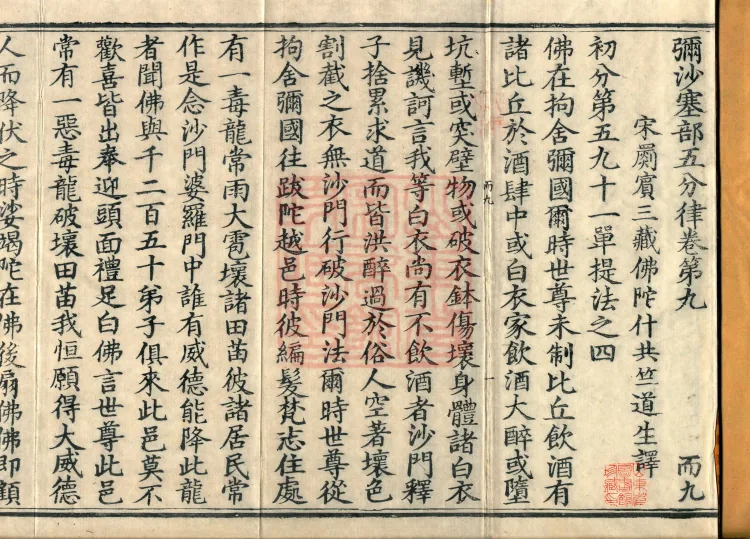 彌沙塞部五分律卷第九 而九
宋罽賓三藏佛陀什共竺道生譯
初分第五九十一單提法之四
佛在拘舍彌國爾時世尊未制比丘飲酒有
諸比丘於酒肆中或白衣家飲酒大醉或墮
而九 一
坑塹或突壁物或破衣鉢傷壞身體諸白衣
見譏訶言我等白衣尚有不飲酒者沙門釋
子捨累求道而皆洪醉過於俗人空著壞色
割截之衣無沙門行破沙門法爾時世尊從
拘舍彌國往跋陀越邑時彼編髮梵志住處
有一毒龍常雨大雹壞諸田苗彼諸居民常
作是念沙門婆羅門中誰有威德能降此龍
者聞佛與千二百五十弟子俱來此邑莫不
歡喜皆出奉迎頭面禮足白佛言世尊此邑
常有一惡毒龍破壞田苗我恒願得大威德
人而降伏之時娑竭陀在佛後扇佛佛即顧